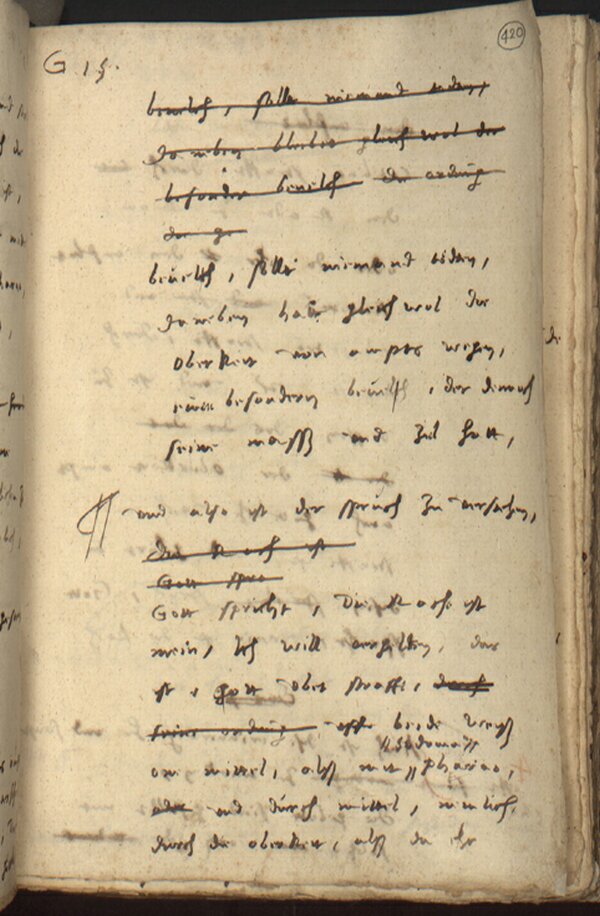 420
G 15.
beuelh, soll niemand toden,
daneben bleibet gleich wol der
besonder beuelh der ordnung
beuelh, soll niemand toden,
daneben hatt gleich wol die
oberkeit von ampts wegen,
einen besondern beuelh, der dennoch
seine mass und zil hatt,
und also ist der spruch zu versthehen,
die Rach ist
Gott spri
Gott spricht, Die Rach ist
mein, Ich will vergelten, das
ist, Gott vbet straffe, durch
seine ordnung auff beide weyss
Sodoma
on mittel, alss mit pharao,
oder und durch mittel, nemlich
durch die oberkeit, alss da ehr